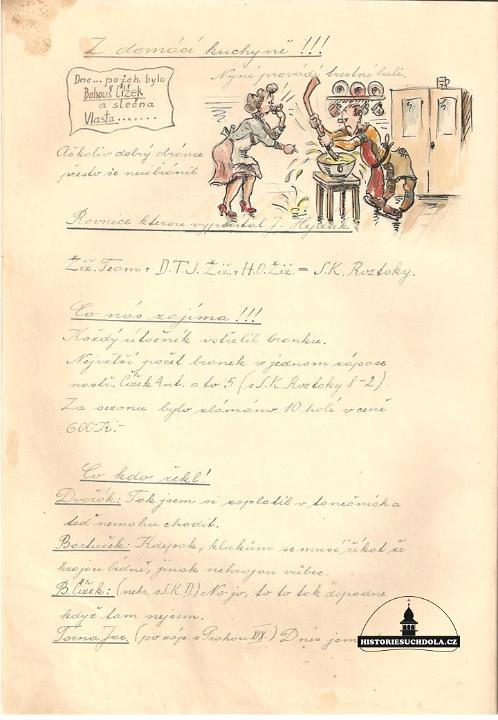 Z domácí kuchyně !!!
Nyní provádí trestné buli.
Dne... požeh. bylo
Bohouš Čížek
a slečna
Vlasta.......
Ačkoliv dobrý obránce
přesto se neubránil
Rovnice kterou vypočítal J. Hejduk
Žiž. Team + D.T.J. Žiž. + H.O. Žiž. = S.K. Roztoky.
Co nás zajímá !!!
Každý útočník vstřelil branku.
Největší počet branek v jednom zápase
nastř. Čížek Ant. a to 5 (s S.K. Roztoky 8-2).
Za sezonu bylo zlámáno 10 holí v ceně
600 Kč.-
Co kdo řekl!
Dvořák: Tak jsem si zaplatil v tanečních a
teď nemohu chodit.
Bartušek: Kdepak, klukům se musí říkat že
hrajou bídně, jinak nehrajou vůbec.
B. Čížek: (nehr. s S.K.D.) No jo, to to tak dopadne
když tam nejsem.
(po záp. s Prahou XIX.) Dnes jsem
HISTORIESUCHDOLA.CZ